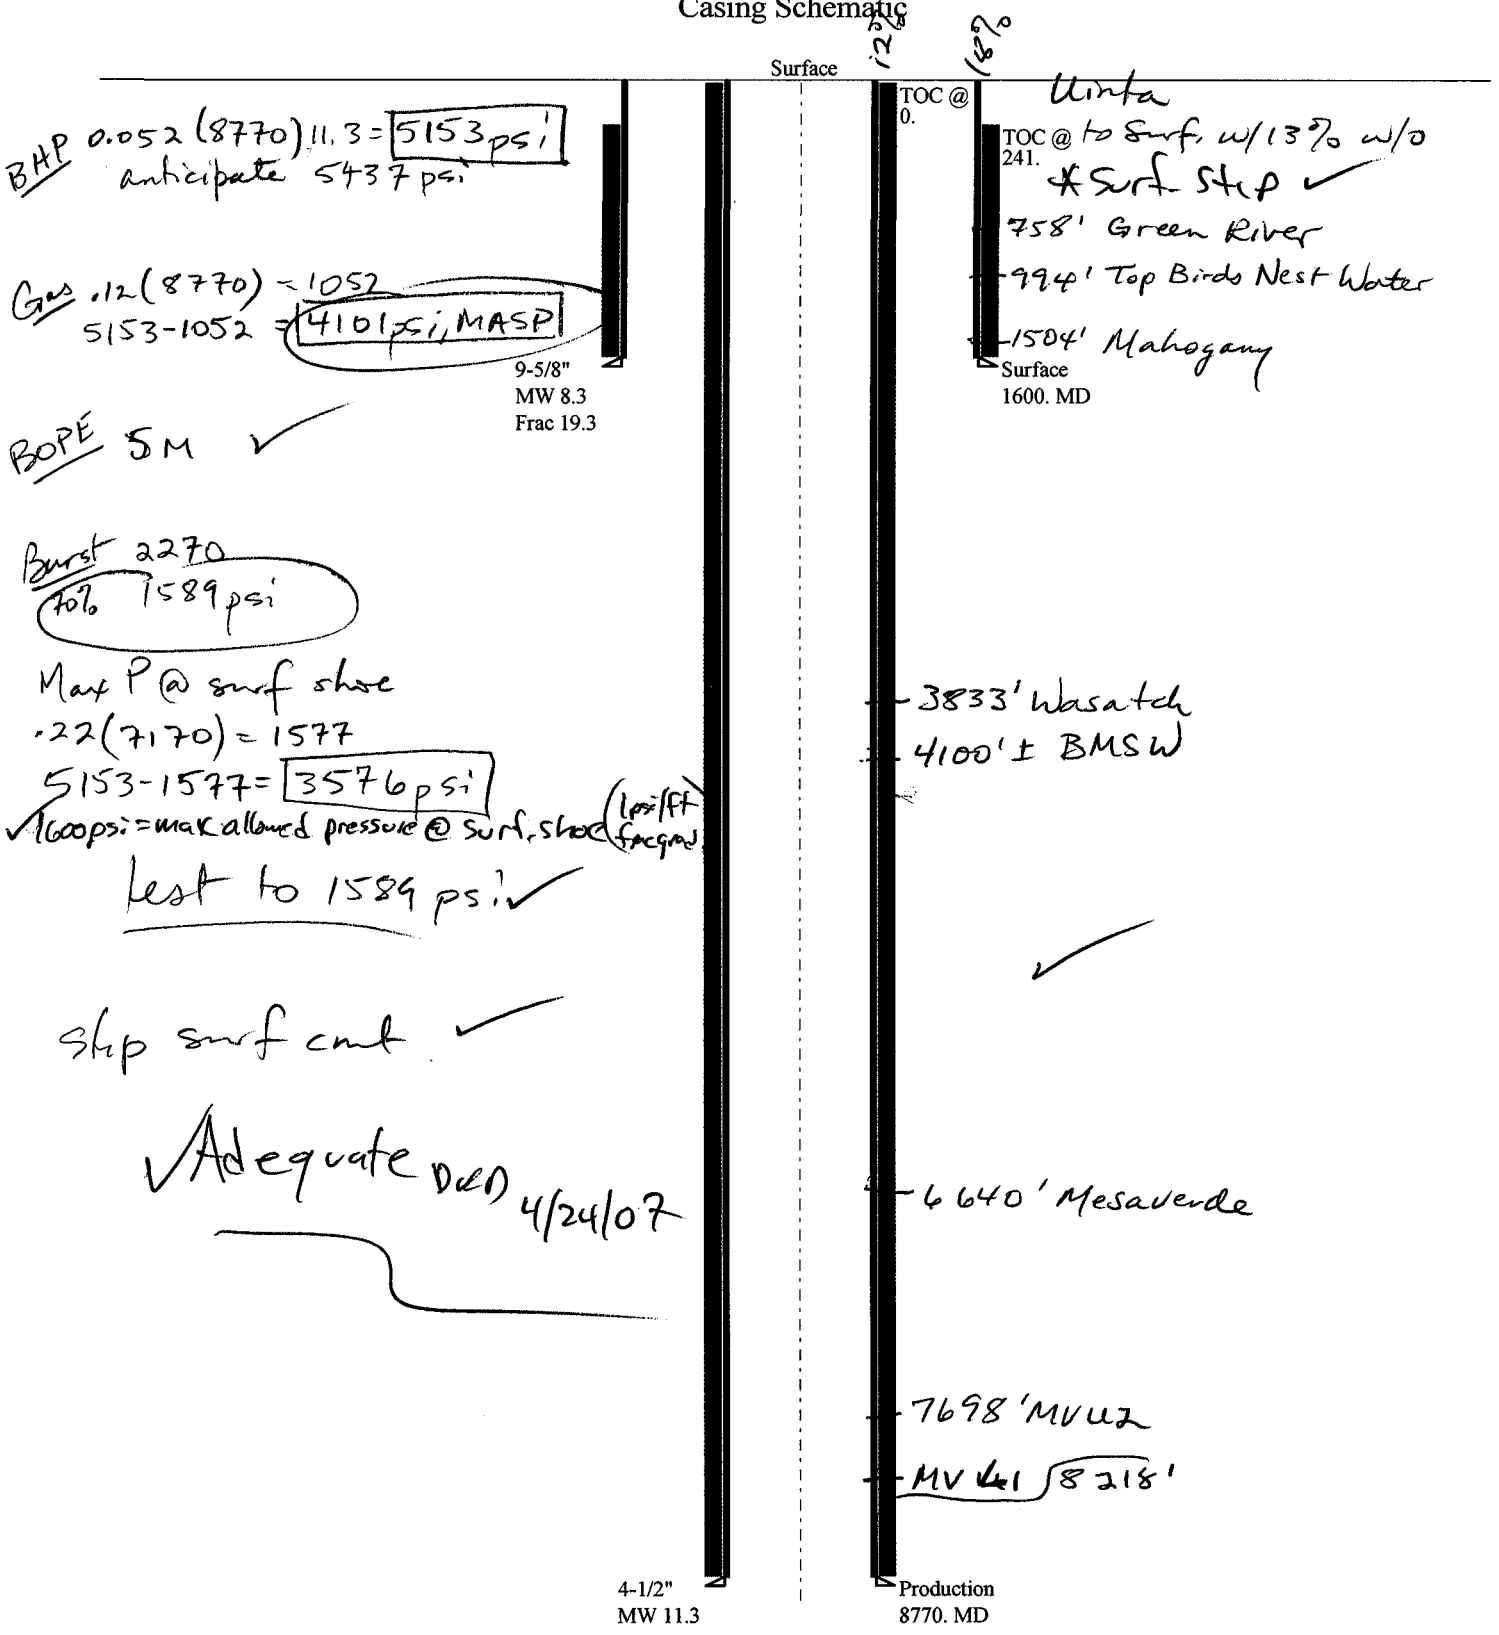 Casing Schematic
12%
18%
Surface
BHP 0.052 (8770) 11.3 = 5153 psi
anticipate 5437 psi
Gas .12 (8770) = 1052
5153-1052 = 4101 psi, MASP
9-5/8"
MW 8.3
Frac 19.3
BOPE 5M ✓
Burst 2270
70% 1589 psi
Max P @ surf shoe
.22(7170) = 1577
5153-1577 = 3576 psi
✓1600 psi = max allowed pressure @ surf. shoe (1psi/ft
frac grad
test to 1589 psi ✓
surf cmt ✓
✓Adequate
4/24/07
4-1/2"
MW 11.3
TOC @
0.
Uinta
TOC @ to Surf. w/13% w/o
241.
*Surf Stip ✓
758' Green River
994' Top Birds Nest Water
1504' Mahogany
Surface
1600. MD
3833' Wasatch
4100' ± BMSW
✓
6640' Mesaverde
7698' MVU2
MV 8218'
Production
8770. MD